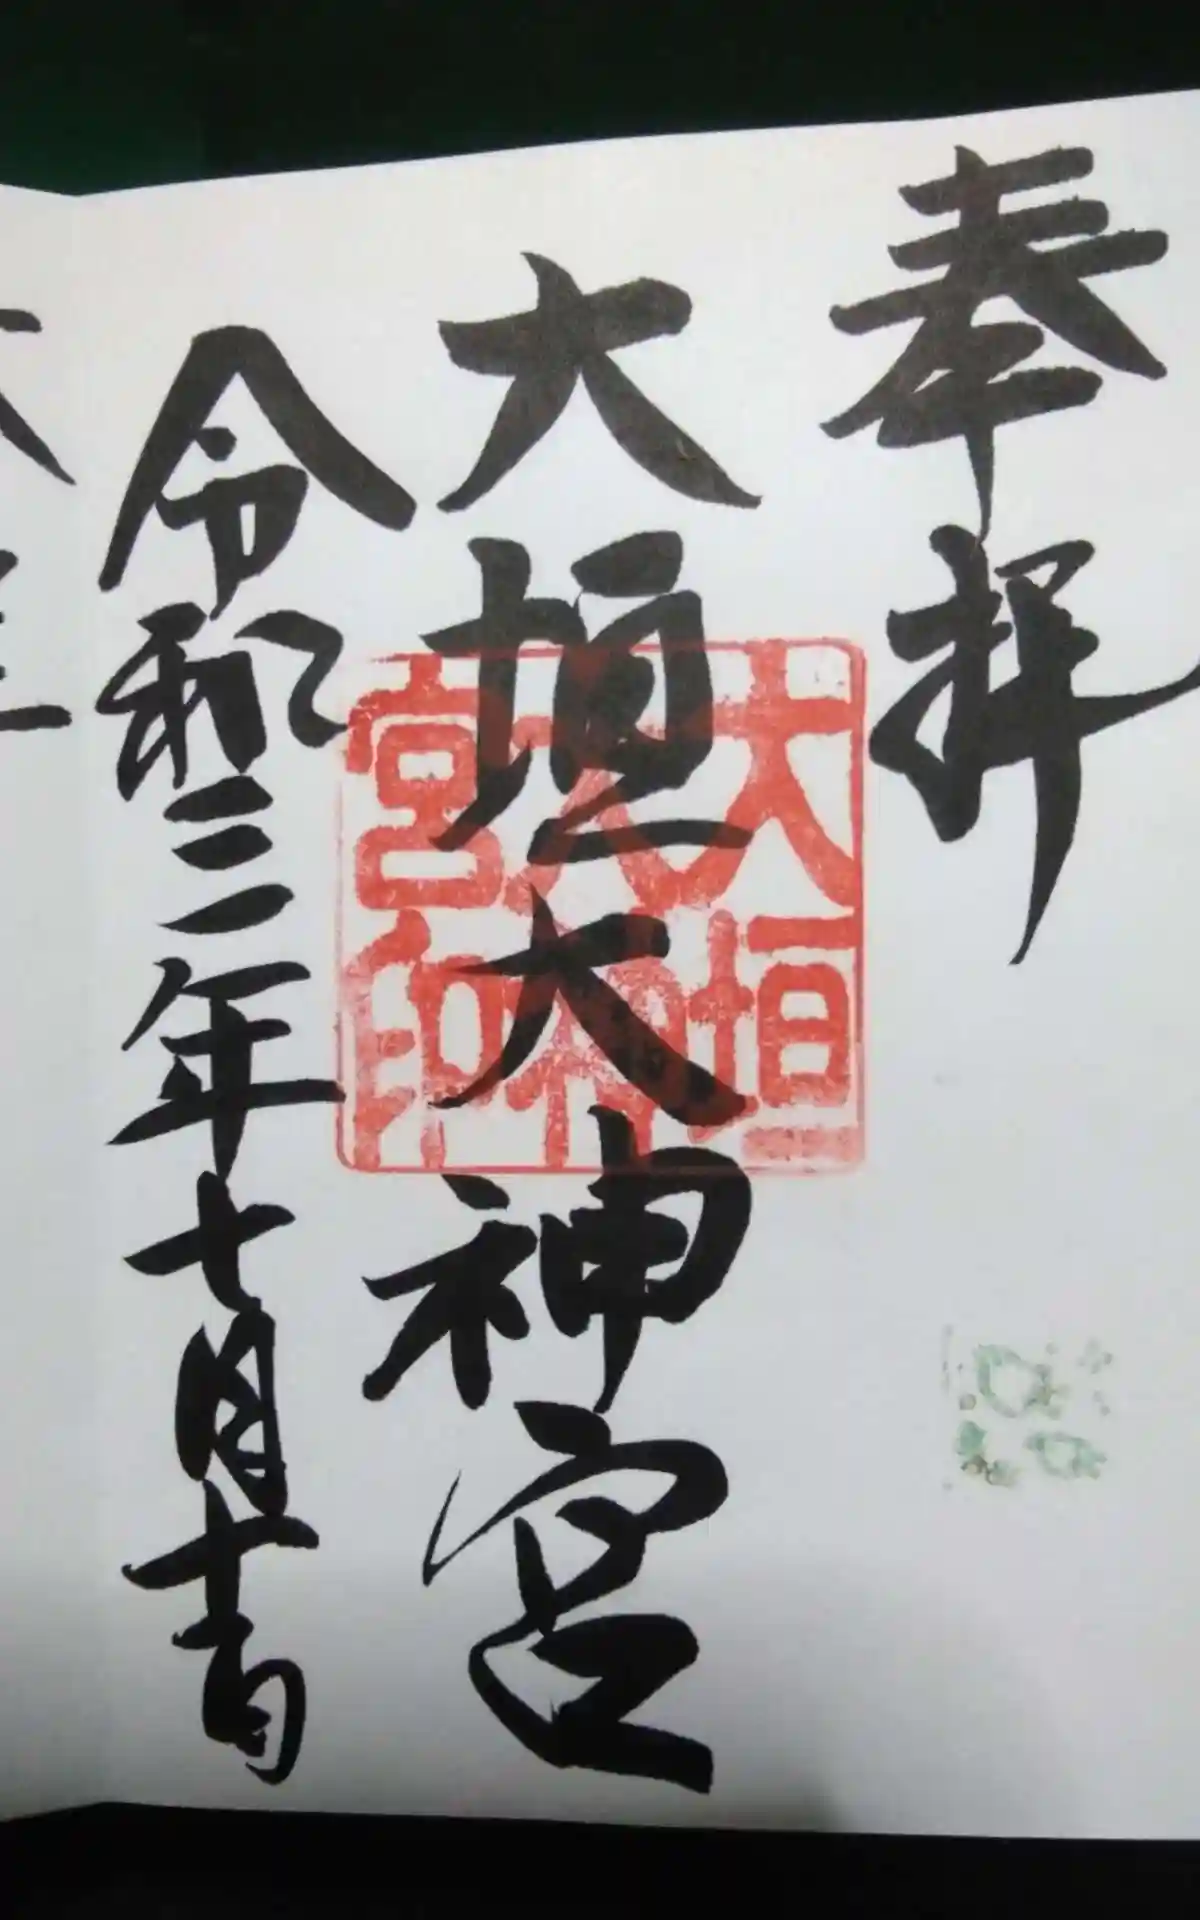 奉拝
大垣大神宮
令和三年七月十一日
大垣
大神
宮印